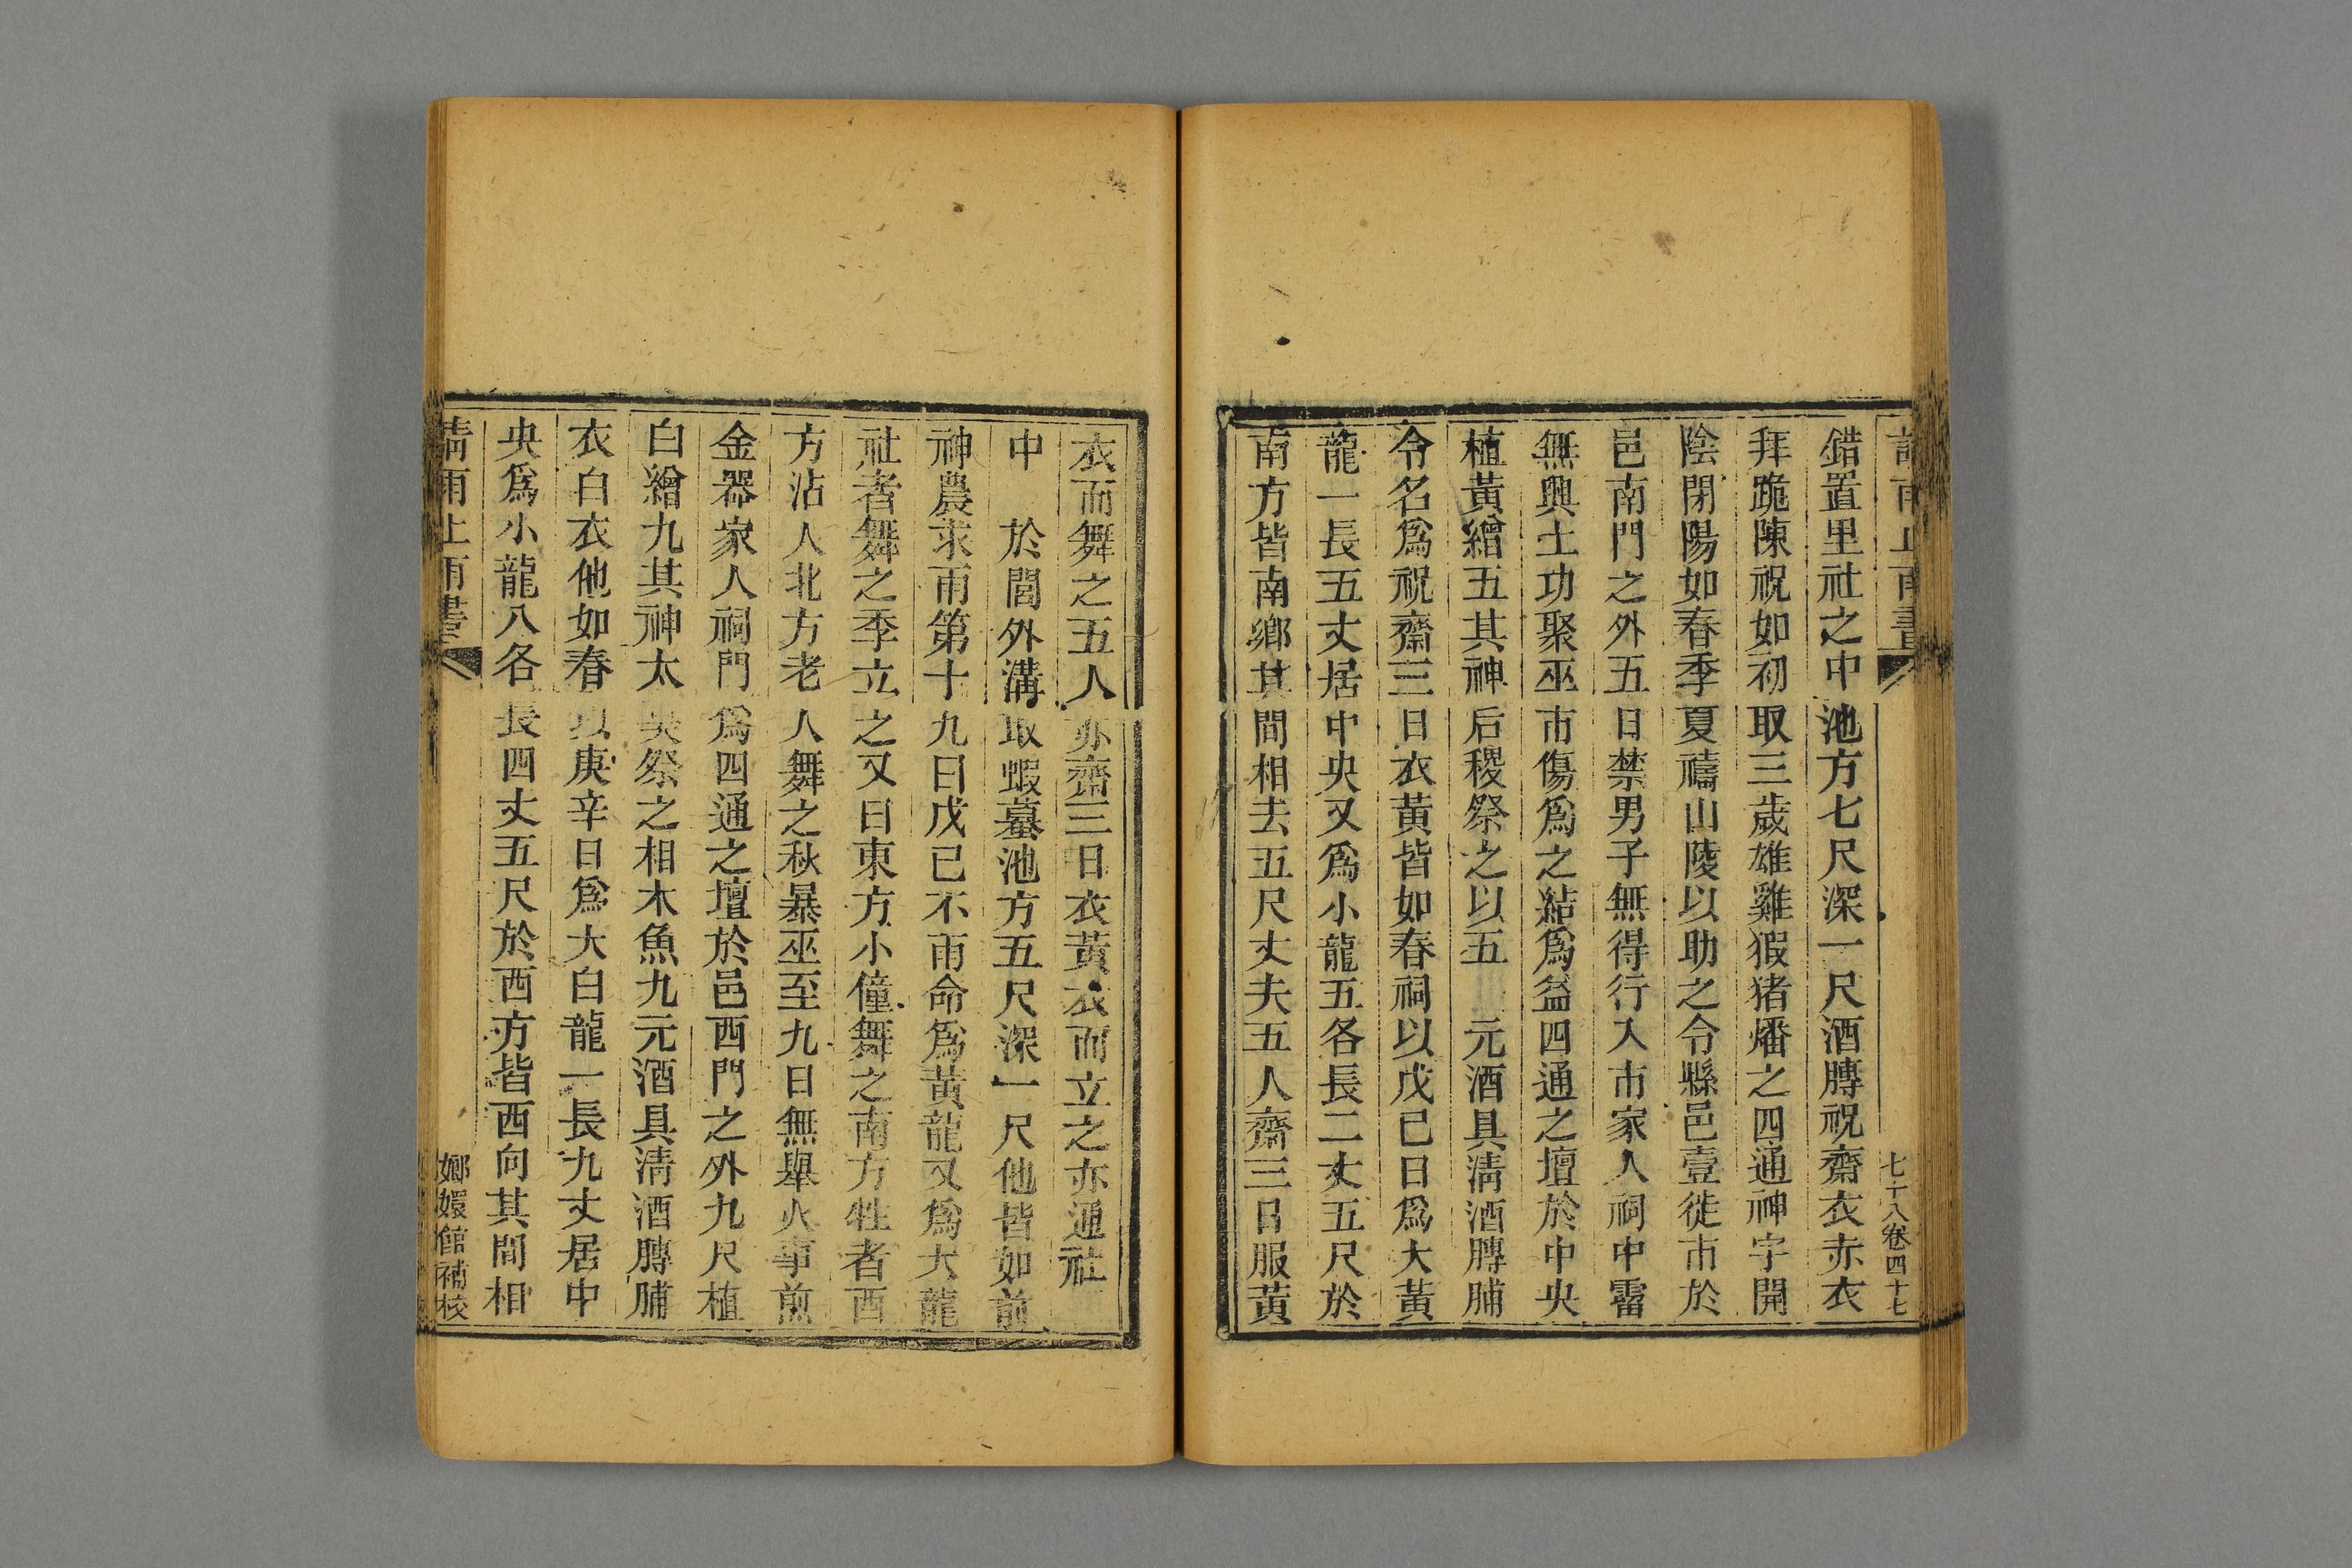 請雨止雨書
七十八卷四十七
錯置里社之中池方七尺深一尺酒膊祝齋衣赤衣
拜跪陳祝如初取三歲雄雞猳猪燔之四通神宇開
陰閉陽如春季夏禱山陵以助之令縣邑壹徙市於
邑南門之外五日禁男子無得行入市家人祠中霤
無興土功聚巫市傷爲之結爲葢四通之壇於中央
植黃繒五其神后稷祭之以五 元酒具淸酒膊脯
令名爲祝齋三日衣黃皆如春祠以戊巳日爲大黃
龍一長五丈居中央又爲小龍五各長二丈五尺於
南方皆南鄉其間相去五尺丈夫五人齋三日服黃
衣而舞之五人亦齋三日衣黃衣而立之亦通社
中 於閭外溝取蝦蟇池方五尺深一尺他皆如前
神農求雨第十九曰戊已不雨命爲黃龍又爲大龍
社者舞之季立之又曰東方小僮舞之南方牲者西
方沾人北方老人舞之秋暴巫至九日無舉火事煎
金器家人祠門爲四通之壇於邑西門之外九尺植
白繒九其神太昊祭之相木魚九元酒具淸酒膊脯
衣白衣他如春以庚辛日爲大白龍一長九丈居中
央爲小龍八各長四丈五尺於西方皆西向其間相
請雨止雨書
嫏嬛館補校